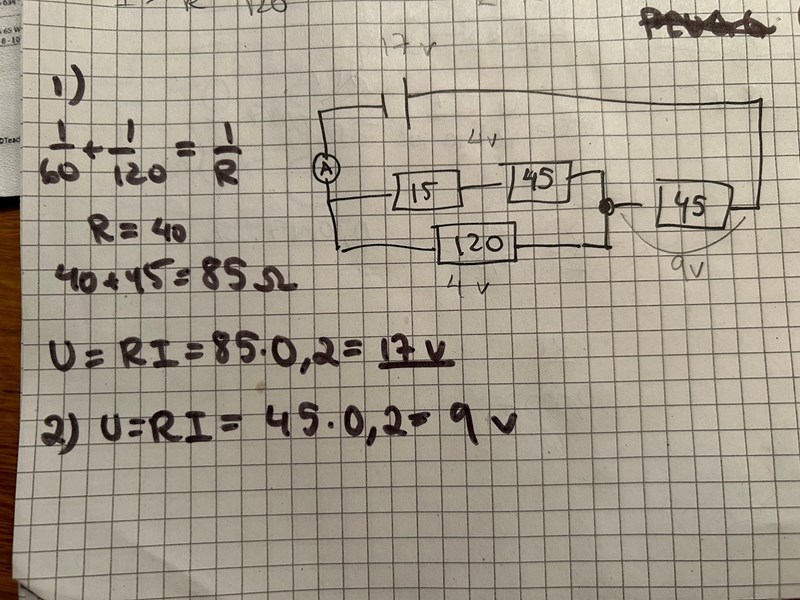 17 v
1)
1/60 + 1/120 = 1/R
R = 40
40+45=85Ω
A
4v
15
45
120
4 v
45
9v
U = RI = 85·0,2 = 17 v
2) U=RI = 45·0,2= 9 v